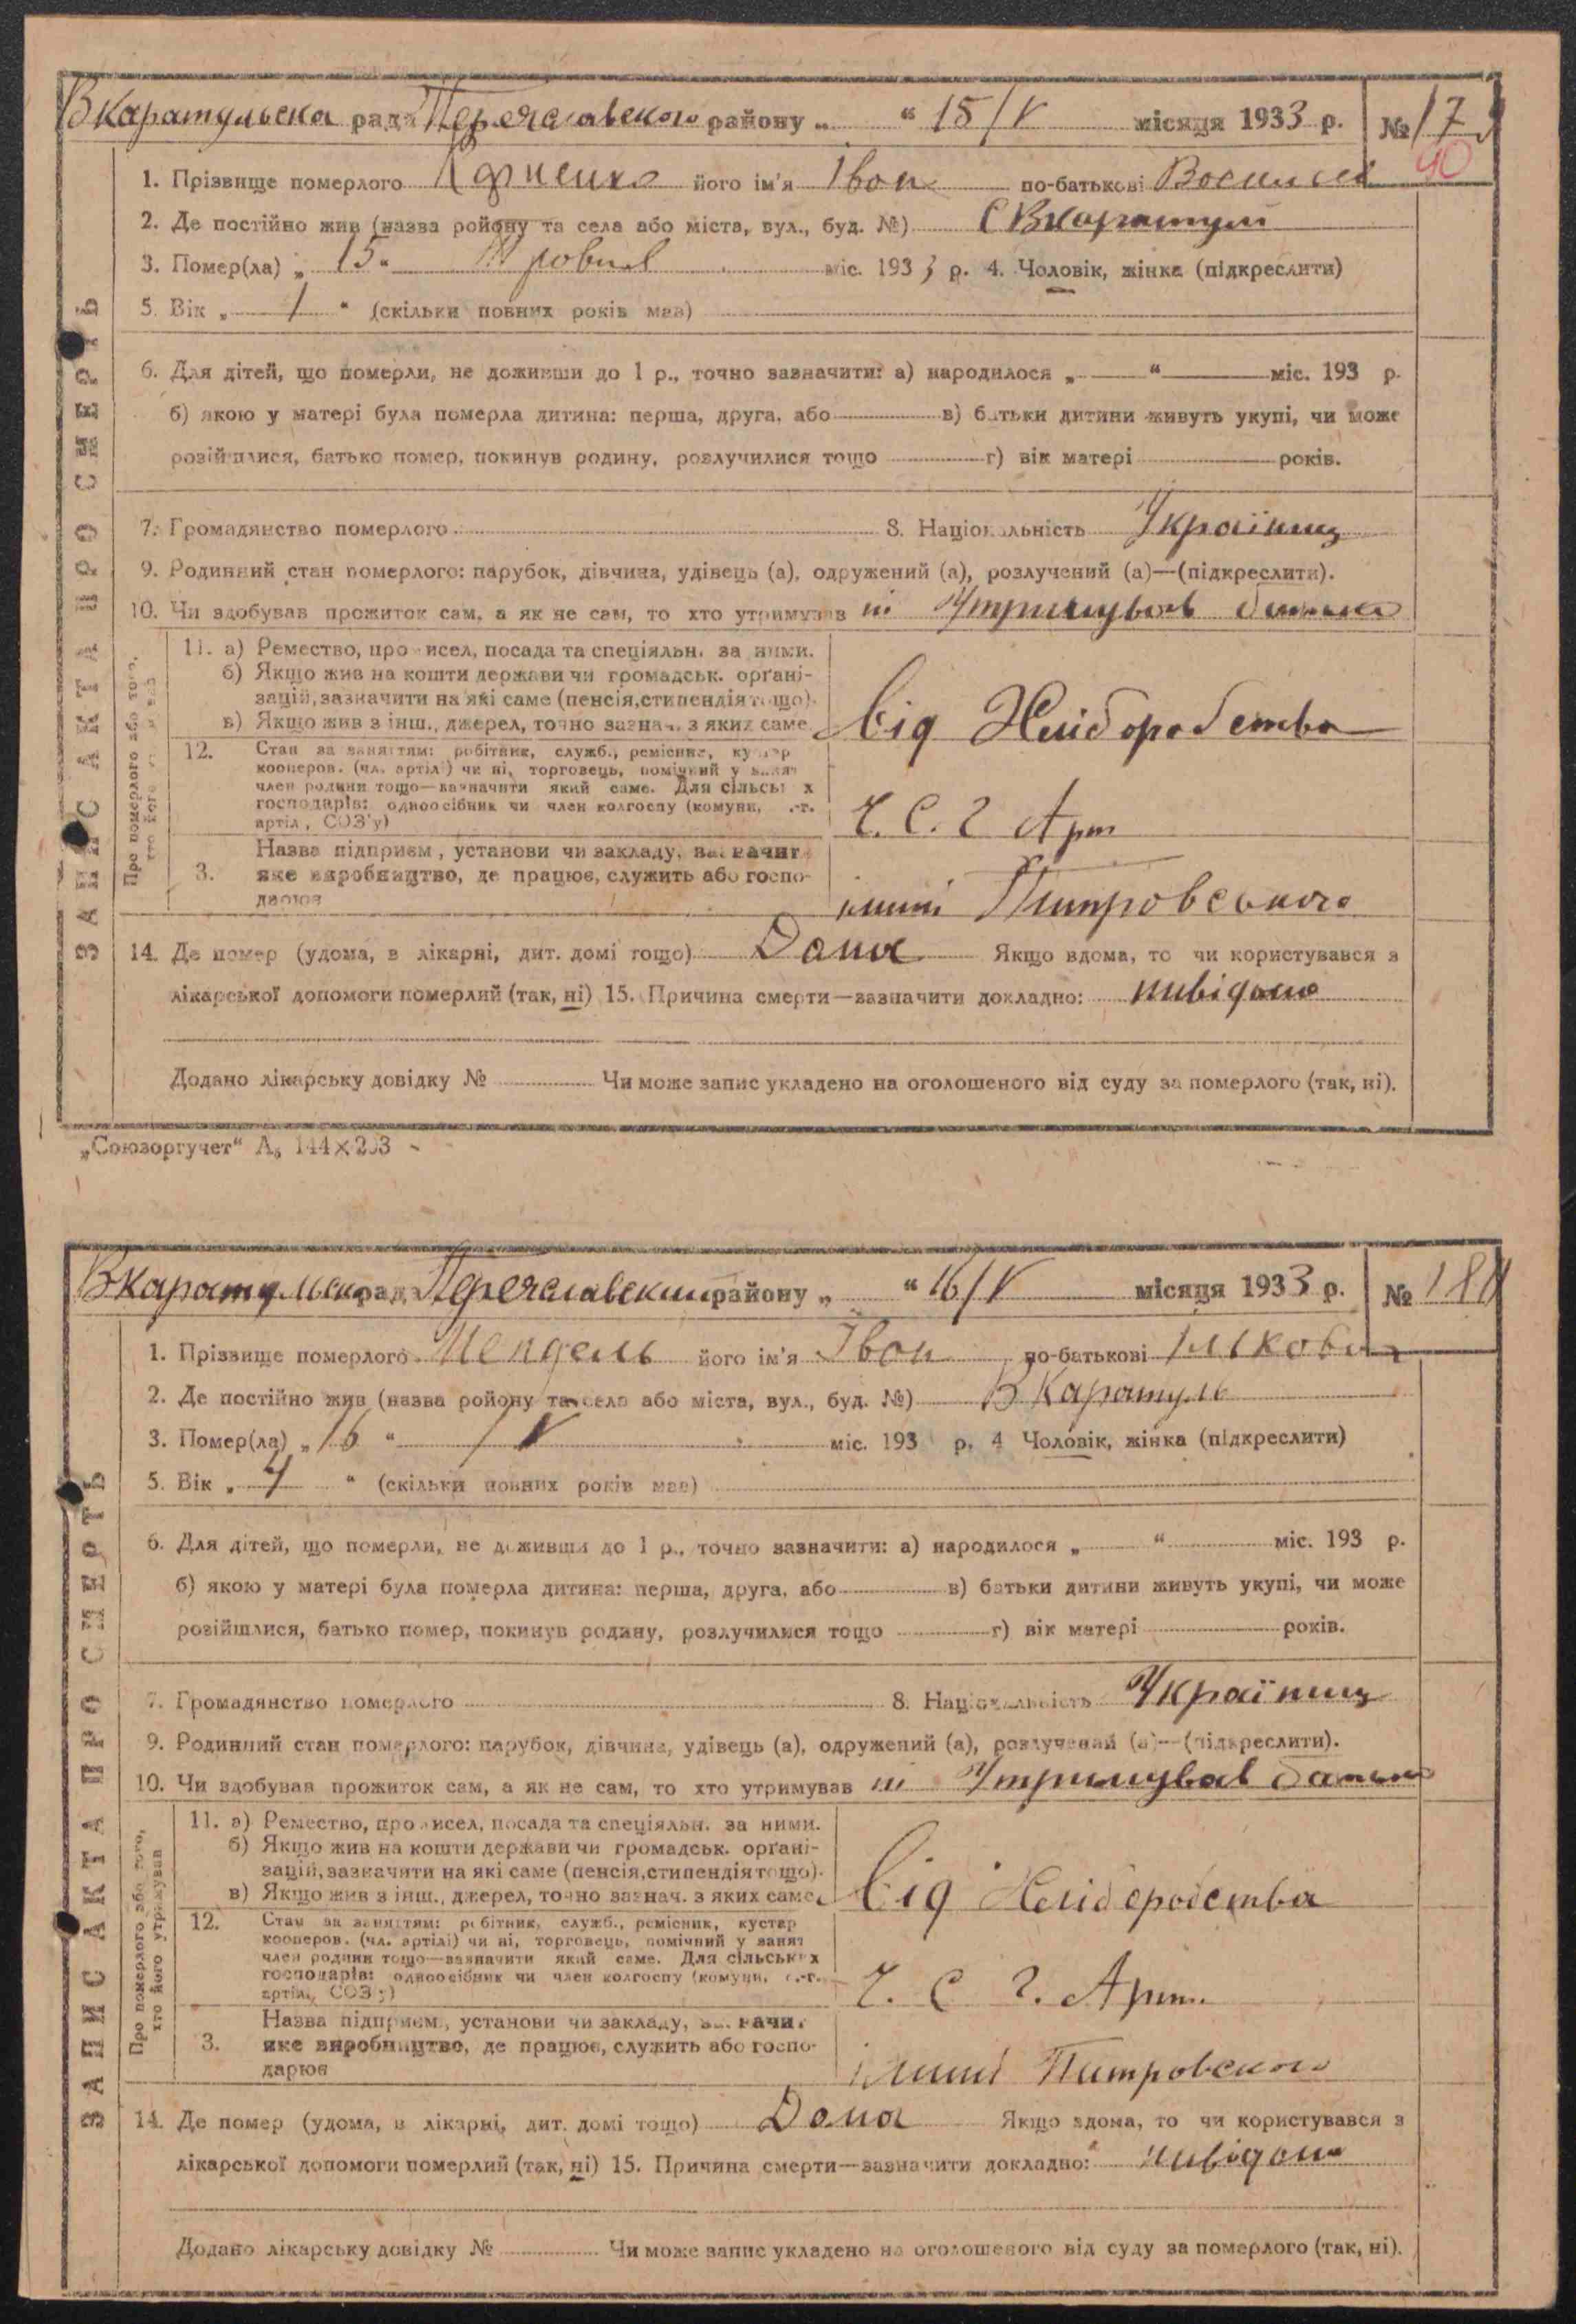 Вкаратульска рада Переяславского району „ “ 15/V місяця 1933 р. № 179
90
1. Прізвище померлого його ім'я Іван по-батькові
2. Де постійно жив (назва ройону та села або міста, вул., буд. №) С Вкаратули
3. Помер(ла) „ 15 “ міс. 1933 р. 4. Чоловік, жінка (підкреслити)
5. Вік „ 1 “ (скільки повних років мав)
6. Для дітей, що померли, не доживши до 1 р., точно зазначити: а) народилося „ “ міс. 193 р.
б) якою у матері була померла дитина: перша, друга, або в) батьки дитини живуть укупі, чи може
розійшлися, батько помер, покинув родину, розлучилися тощо г) вік матері років.
7. Громадянство померлого 8. Національність Українец
9. Родинний стан померлого: парубок, дівчина, удівець (а), одружений (а), розлучений (а)—(підкреслити).
10. Чи здобував прожиток сам, а як не сам, то хто утримував ні Утримував батько
11. а) Ремество, промисел, посада та спеціяльн. за ними.
б) Якщо жив на кошти держави чи громадськ. орґані-
зацій, зазначити на які саме (пенсія, стипендія тощо).
в) Якщо жив з інш., джерел, точно зазнач. з яких саме
Від Хліборобства
12. Стан за заняттям: робітник, служб., ремісник, кустар
кооперов. (чл. артілі) чи ні, торговець, помічний у занят
член родини тощо—зазначити який саме. Для сільських
господарів: одноосібник чи член колгоспу (комуни, с.-г.
артіл, СОЗ'у)
Ч. С. Г Арт
Назва підприєм, установи чи закладу, зазначит
3. яке виробництво, де працює, служить або госпо-
дарює
імині Питровського
14. Де помер (удома, в лікарні, дит. домі тощо) Дома Якщо вдома, то чи користувався з
лікарської допомоги померлий (так, ні) 15. Причина смерти—зазначити докладно: нивідомо
Додано лікарську довідку № Чи може запис укладено на оголошеного від суду за померлого (так, ні).
ЗАПИС АКТА ПРО СМЕРТЬ
Про померлого або того,
хто його утримував
„Союзоргучет“ А₅ 144×203
Вкаратульска рада Переяславский району „ “ 16/V місяця 1933 р. № 180
1. Прізвище померлого його ім'я Іван по-батькові Ількович
2. Де постійно жив (назва ройону та села або міста, вул., буд. №) В Каратуль
3. Помер(ла) „ 16 “ /V міс. 193 р. 4 Чоловік, жінка (підкреслити)
5. Вік „ 4 “ (скільки повних років мав)
6. Для дітей, що померли, не доживши до 1 р., точно зазначити: а) народилося „ “ міс. 193 р.
б) якою у матері була померла дитина: перша, друга, або в) батьки дитини живуть укупі, чи може
розійшлися, батько помер, покинув родину, розлучилися тощо г) вік матері років.
7. Громадянство померлого 8. Національність Україниц
9. Родинний стан померлого: парубок, дівчина, удівець (а), одружений (а), розлучений (а)—(підкреслити).
10. Чи здобував прожиток сам, а як не сам, то хто утримував ні Утримував батько
11. а) Ремество, промисел, посада та спеціяльн. за ними.
б) Якщо жив на кошти держави чи громадськ. орґані-
зацій, зазначити на які саме (пенсія, стипендія тощо).
в) Якщо жив з інш., джерел, точно зазнач. з яких саме
Від Хліборобства
12. Стан за заняттям: робітник, служб., ремісник, кустар
кооперов. (чл. артілі) чи ні, торговець, помічний у занят
член родини тощо—зазначити який саме. Для сільських
господарів: одноосібник чи член колгоспу (комуни, с.-г.
артіл, СОЗ'у)
Ч. С Г. Арт.
Назва підприєм, установи чи закладу, зазначит
3. яке виробництво, де працює, служить або госпо-
дарює
імині Питровського
14. Де помер (удома, в лікарні, дит. домі тощо) Дома Якщо вдома, то чи користувався з
лікарської допомоги померлий (так, ні) 15. Причина смерти—зазначити докладно: нивідомо
Додано лікарську довідку № Чи може запис укладено на оголошеного від суду за померлого (так, ні).
ЗАПИС АКТА ПРО СМЕРТЬ
Про померлого або того,
хто його утримував